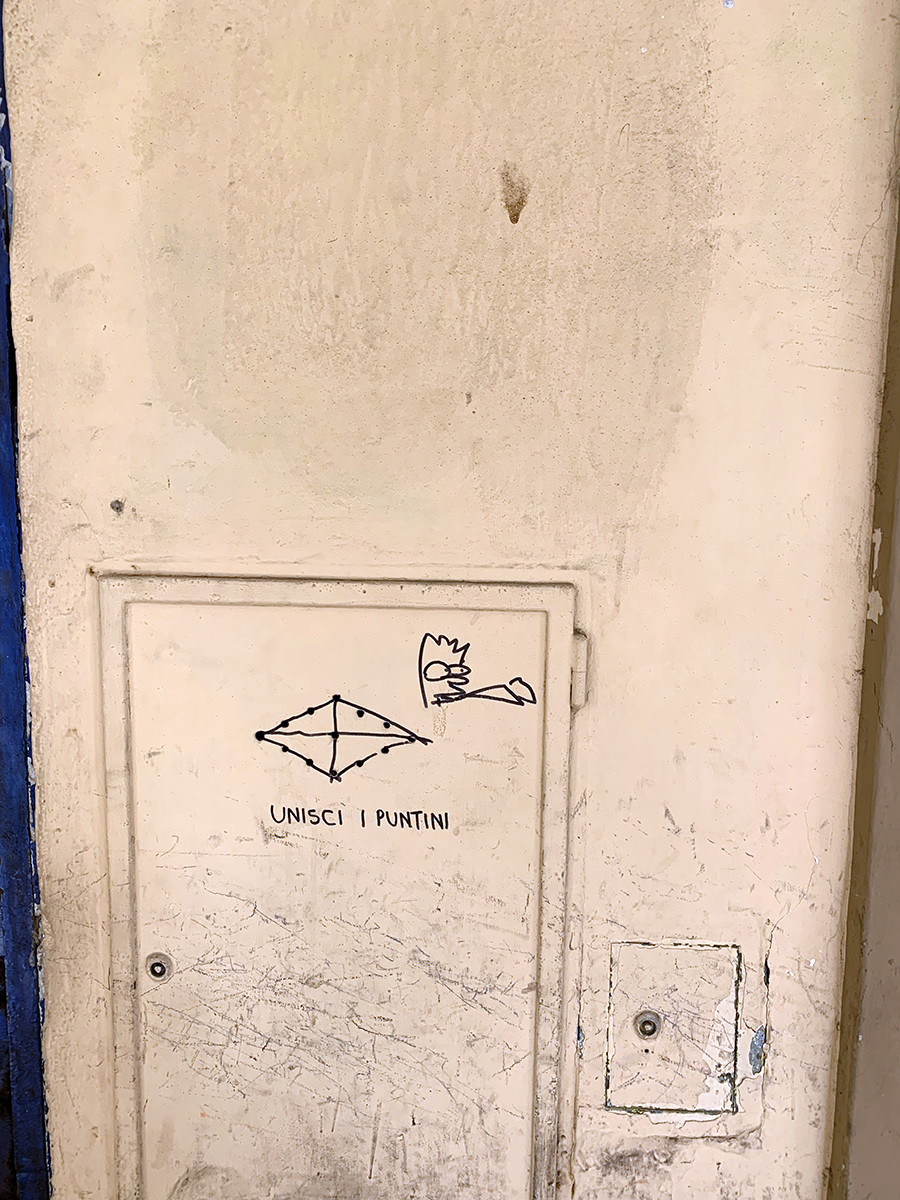 UNISCI I PUNTINI